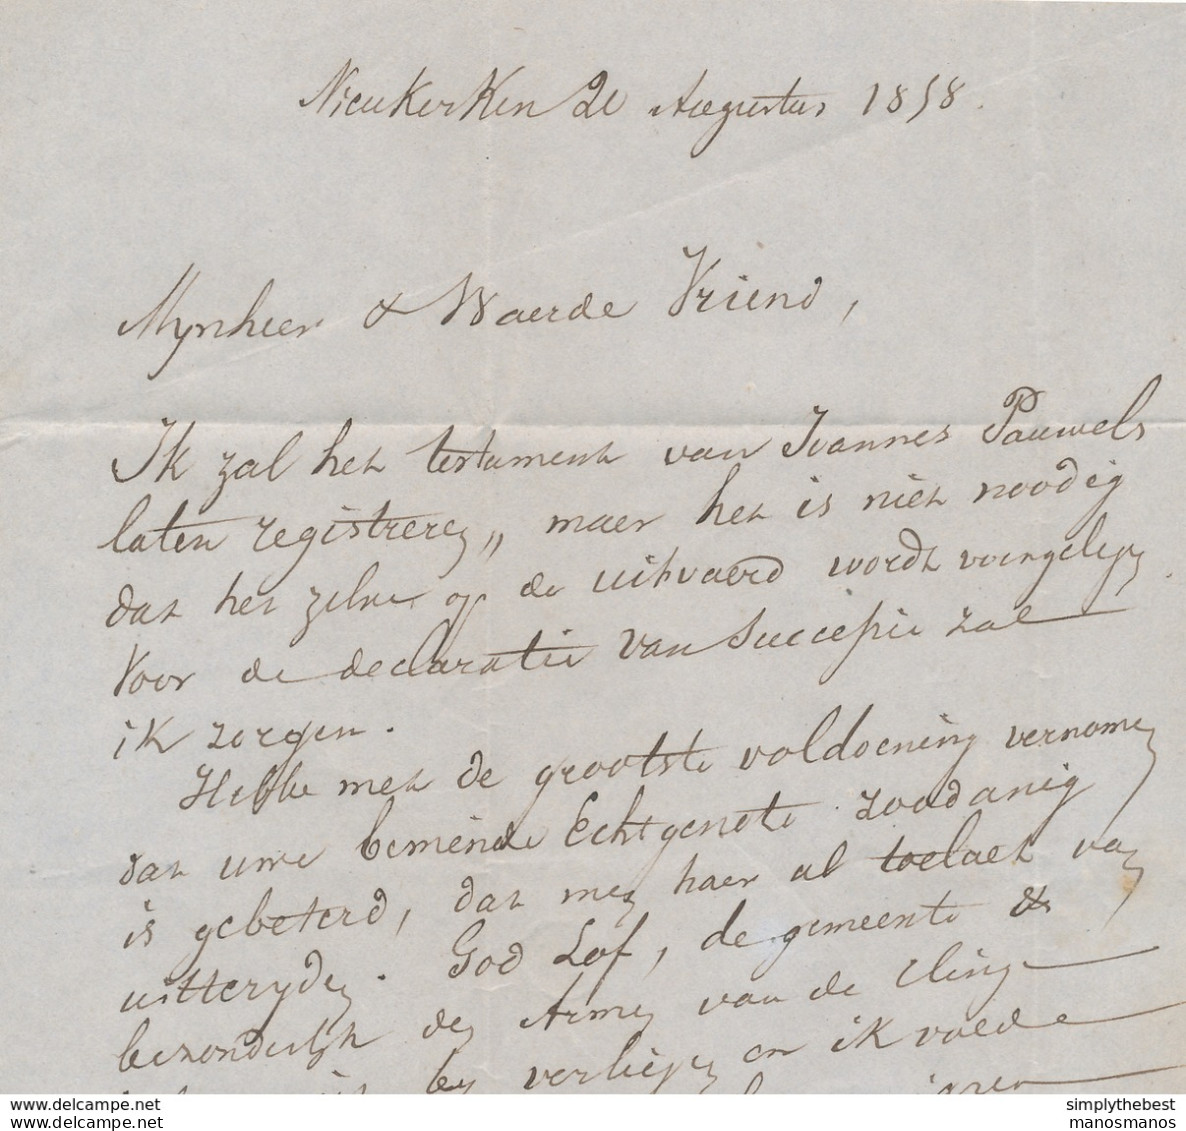 Nieukerken 20 Augustus 1858.
Mynheer & Waerde Vriend,
Ik zal het testament van Joannes Pauwels
laten registreren, maer het is niet noodig
dat het zelve op de uitvaerd wordt voorgelezen.
Voor de declaratie van Successie zal
ik zorgen.
Hebbe met de grootste voldoening vernomen
dat uwe beminde Echtgenote zoodanig
is gebeterd, dat men haer al toelaet van
uitteryden. God Lof, de gemeente &
bezonderlyk den Armen van de Clinge
by verliezen en ik voede
simplythebest
manosmanos